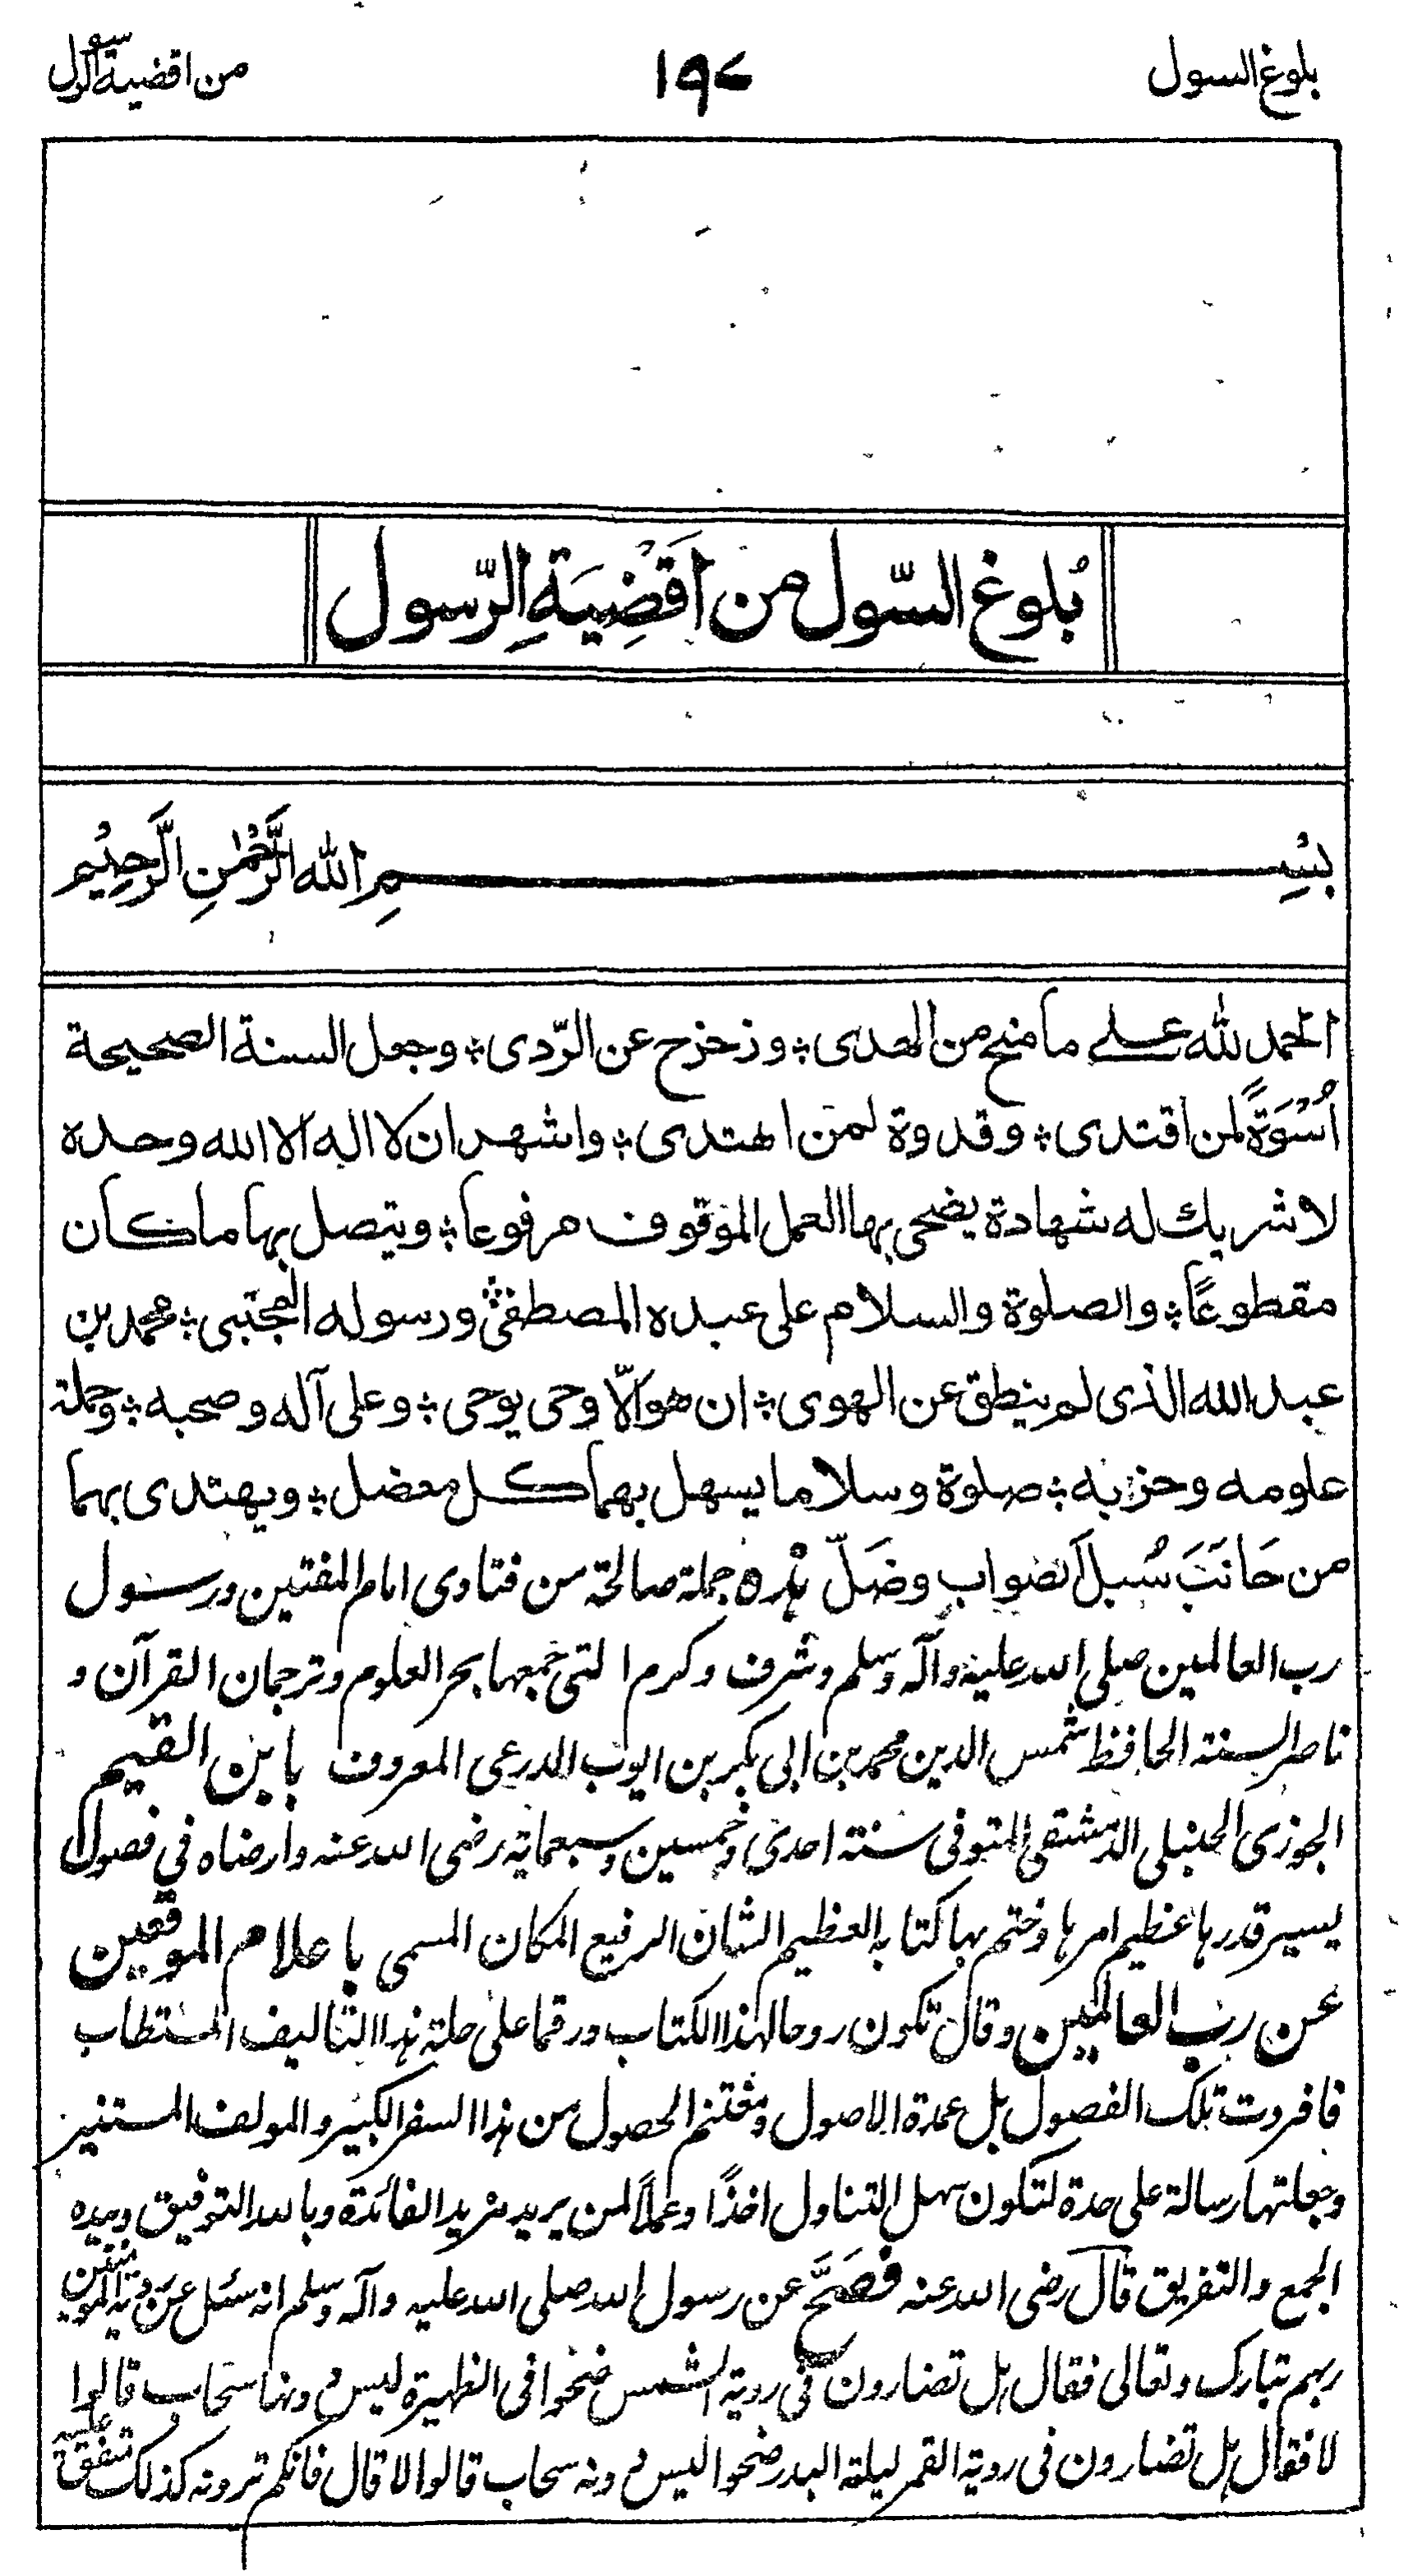 بلوغ السول
١٩٧
من اقضية الرسول
بُلوغ السّول من اَقضِيَةِ الرّسول
بسْمِ الله الرَّحْمٰنِ الرَّحِيْم
الحمد لله على ما منح من الهدى ؛ وزحزح عن الرّدى ؛ وجعل السنة الصحيحة
اُسْوَةً لمن اقتدى ؛ وقدوة لمن اهتدى ؛ واشهد ان لا اله الا الله وحده
لا شريك له شهادة يضحى بها العمل الموقوف مرفوعا ؛ ويتصل بها ما كان
مقطوعًا ؛ والصلوة والسلام على عبده المصطفى ورسوله المجتبى ؛ محمد بن
عبد الله الذى لم ينطق عن الهوى ؛ ان هو الّا وحى يوحى ؛ وعلى آله وصحبه ؛ وحملة
علومه وحزبه ؛ صلوة وسلاما يسهل بهما كل معضل ؛ ويهتدى بهما
من حَانَتَ سُبلَ الصواب وضَلّ هذه جملة صالحة من فتاوى امام المفتين ورسول
رب العالمين صلى الله عليه وآله وسلم وشرف وكرم التى جمعها بحر العلوم وترجمان القرآن و
ناصر السنة الحافظ شمس الدين محمد بن ابى بكر بن ايوب الدرعى المعروف بابن القيم
الجوزى الحنبلى الدمشقى المتوفى سنة احدى وخمسين وسبعماية رضى الله عنه وارضاه في فصول
يسير قدرها عظيم امرها وختم بها كتابه العظيم الشان الرفيع المكان المسمى باعلام الموقعين
عن رب العالمين وقال تكون روحا لهذا الكتاب ورقما على حلة هذا التاليف المستطاب
فافردت تلك الفصول بل عمدة الاصول ومغتنم الحصول من هذا السفر الكبير والمولف المستنير
وجعلتها رسالة على حدة لتكون سهل التناول اخذًا وعملًا لمن يريد مزيد الفائدة وبالله التوفيق وبيده
الجمع والتفريق قال رضى الله عنه فصَحَّ عن رسول الله صلى الله عليه وآله وسلم انه سئل عن روية المومنين
ربهم تبارك وتعالى فقال هل تضارون في روية الشمس ضحوا فى الظهيرة ليس دونها سحاب قالوا
لا فقال هل تضارون فى روية القمر ليلة البدر ضحوا ليس دونه سحاب قالوا لا قال فانكم ترونه كذلك متفق عليه